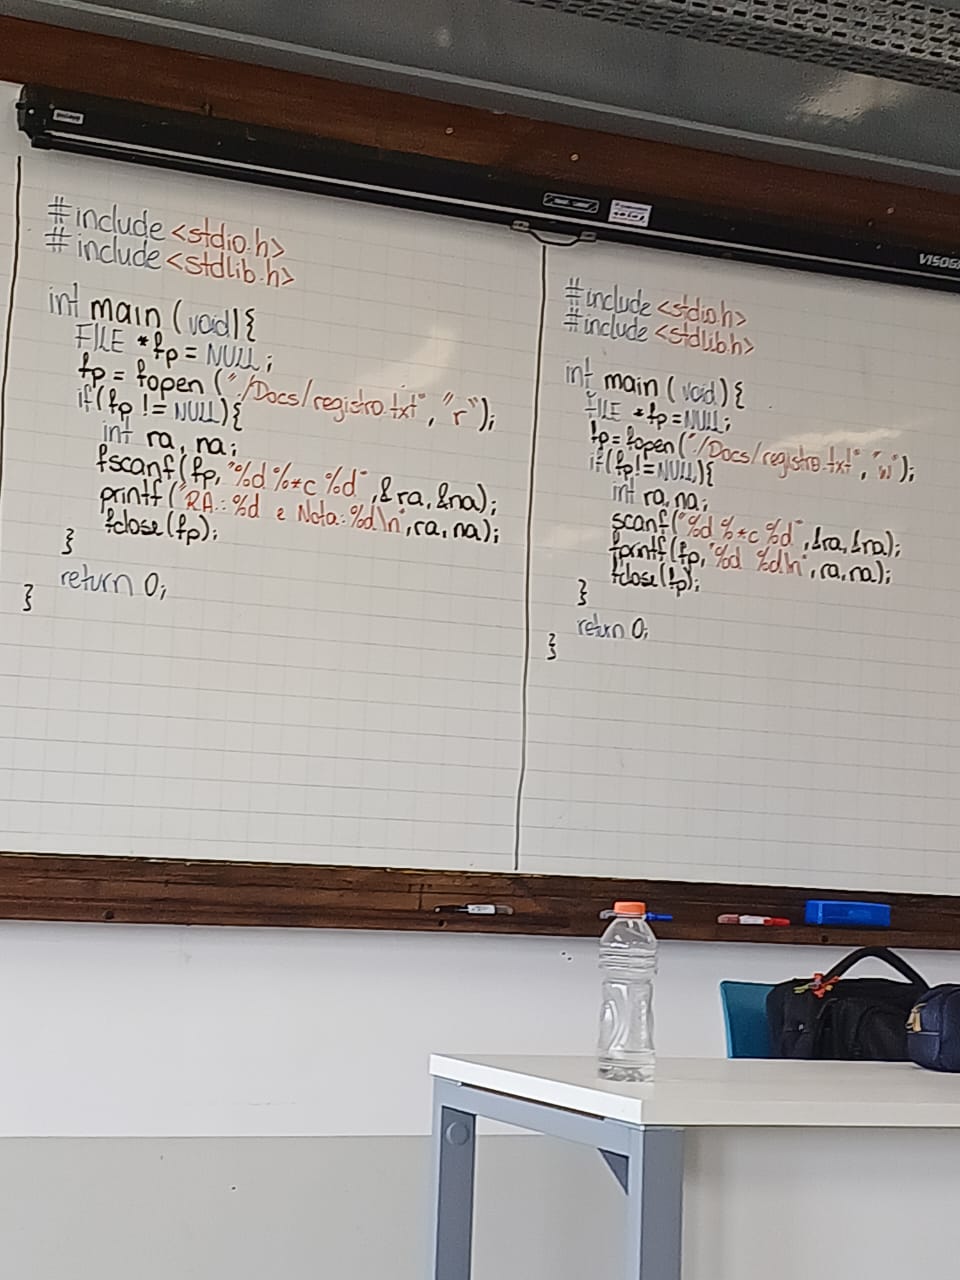 #include <stdio.h>
#include <stdlib.h>
int main (void) {
FILE *fp = NULL;
fp = fopen ("./Docs/registro.txt", "r");
if(fp != NULL){
int ra, na;
fscanf(fp, "%d %*c %d", &ra, &na);
printf("RA: %d e Nota: %d\n", ra, na);
fclose(fp);
}
return 0;
}
#include <stdio.h>
#include <stdlib.h>
int main (void) {
FILE *fp = NULL;
fp = fopen("/Docs/registro.txt", "w");
if(fp != NULL){
int ra, na;
scanf("%d %*c %d", &ra, &na);
fprintf(fp, "%d %d\n", ra, na);
fclose(fp);
}
return 0;
}